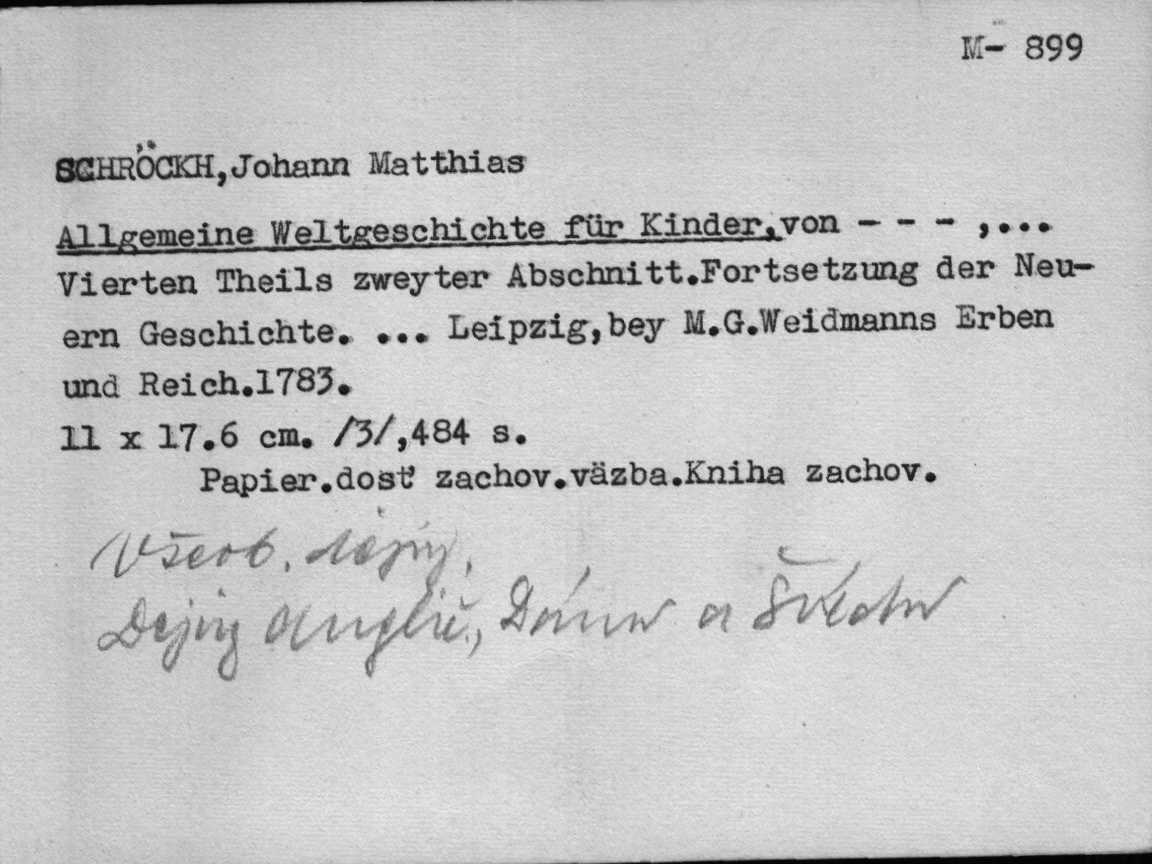 M- 899
SCHRÖCKH,Johann Matthias
Allgemeine Weltgeschichte für Kinder,von - - - ,...
Vierten Theils zweyter Abschnitt.Fortsetzung der Neu-
ern Geschichte. ... Leipzig,bey M.G.Weidmanns Erben
und Reich.1783.
11 x 17.6 cm. /3/,484 s.
Papier.dosť zachov.väzba.Kniha zachov.
Všeob. dejiny.
Dejiny Anglic., Dánw a Švédw